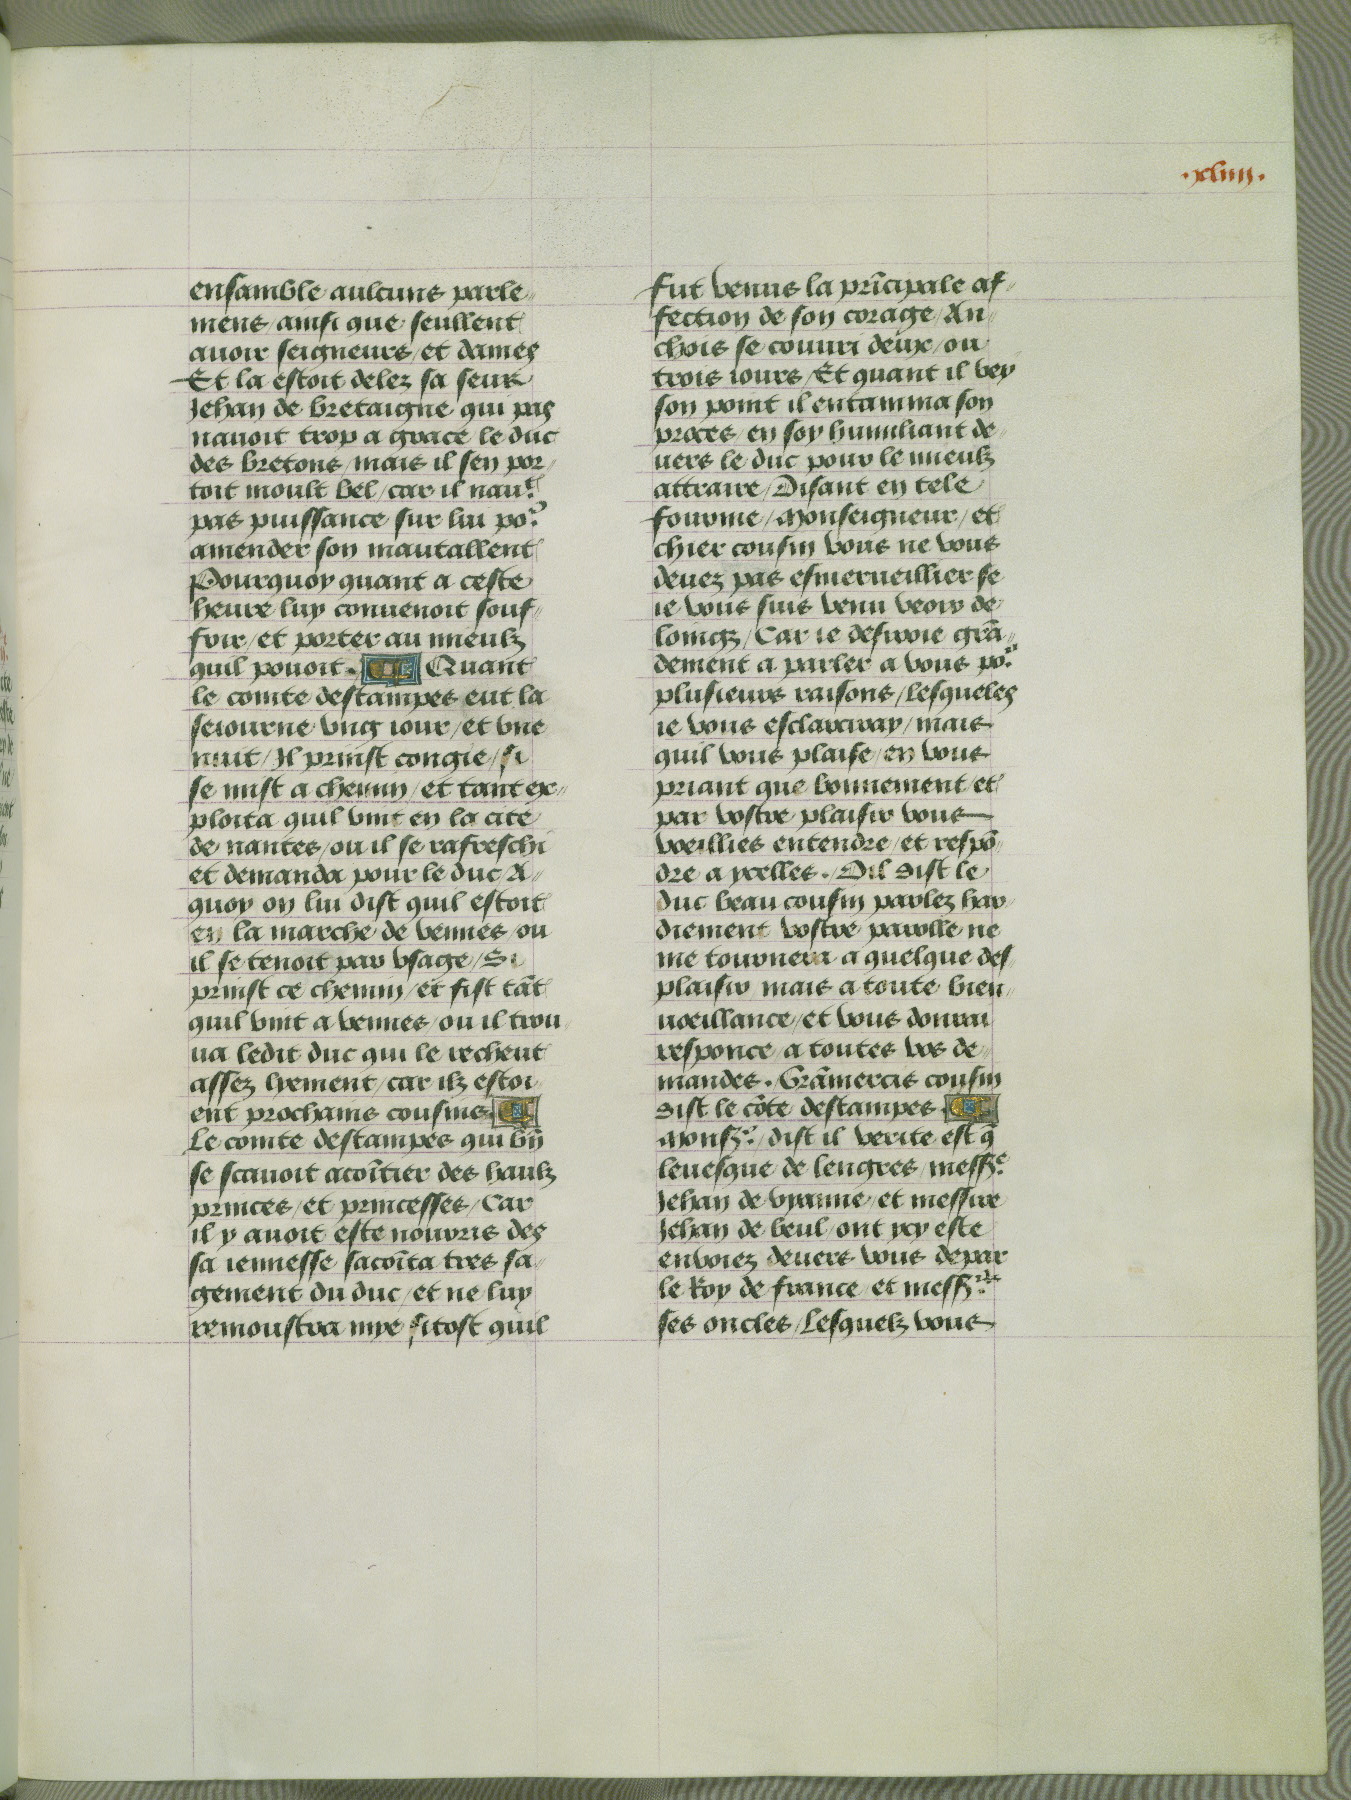 54
.xliiii.
ensamble aulcuns parle-
mens/ ainsi que seullent
auoir seigneurs/ et dames
Et la estoit delez sa seur
Jehan de bretaigne qui pas
nauoit trop a grace le duc
des bretons/ mais il sen por-
toit moult bel/ car il nauᵗ
pas puissance sur lui poʳ
amender son mautallent
Pourquoy quant a ceste
heure luy conuenoit souf-
frir/ et porter au mieulz
quil pouoit. Quant
le comte destampes eut la
seiourne vng iour/ et vne
nuit/ Il prinst congie/ si
se mist a chemin/ et tant ex-
ploita quil vint en la cite
de nantes/ ou il se rafreschi
et demanda pour le duc A-
quoy on lui dist quil estoit
en la marche de vennes/ ou
il se tenoit par vsage/ Si
prinst ce chemin/ et fist tāt
quil vint a vennes/ ou il trou-
ua ledit duc qui le recheut
assez lieement/ car ilz estoi-
ent prochains cousins.
Le comte destampes qui bn̄
se scauoit acoītier des haulz
princes/ et princesses/ Car
il y auoit este nourris des
sa iennesse sacoīta tres sa-
gement du duc/ et ne luy
remoustra mye sitost quil
fut venus la prīcipale af-
fection de son corage/ An-
chois se couuri deux/ ou
trois iours/ Et quant il vey
son point il entamma son
proces/ en soy humiliant de-
uers le duc pour le mieulz
attraire/ Disant en tele
fourme/ Monseigneur/ et
chier cousin vous ne vous
deuez pas esmerueillier se
ie vous suis venu veoir de
loingz/ Car ie desiroie grā-
dement a parler a vous poʳ
plusieurs raisons/ lesqueles
ie vous esclarciray/ mais
quil vous plaise/ en vous
priant que bonnement et
par vostre plaisir vous
voeillies entendre/ et respō-
dre a ycelles. Dil dist le
duc beau cousin parlez har-
diement vostre parolle ne
me tournera a quelque des-
plaisir mais a toute bien-
uoeillance/ et vous donrai
responce/ a toutes vos de-
mandes. Grāmercis cousin
dist le cōte destampes.
Monsʳ/ dist il verite est q̄
leuesque de lengres/ messʳᵉ
Jehan de vyanne/ et messire
Jehan de beul/ ont ycy este
envoiez deuers vous depar
le Roy de france/ et messʳˢ
ses oncles/ Lesquelz vous